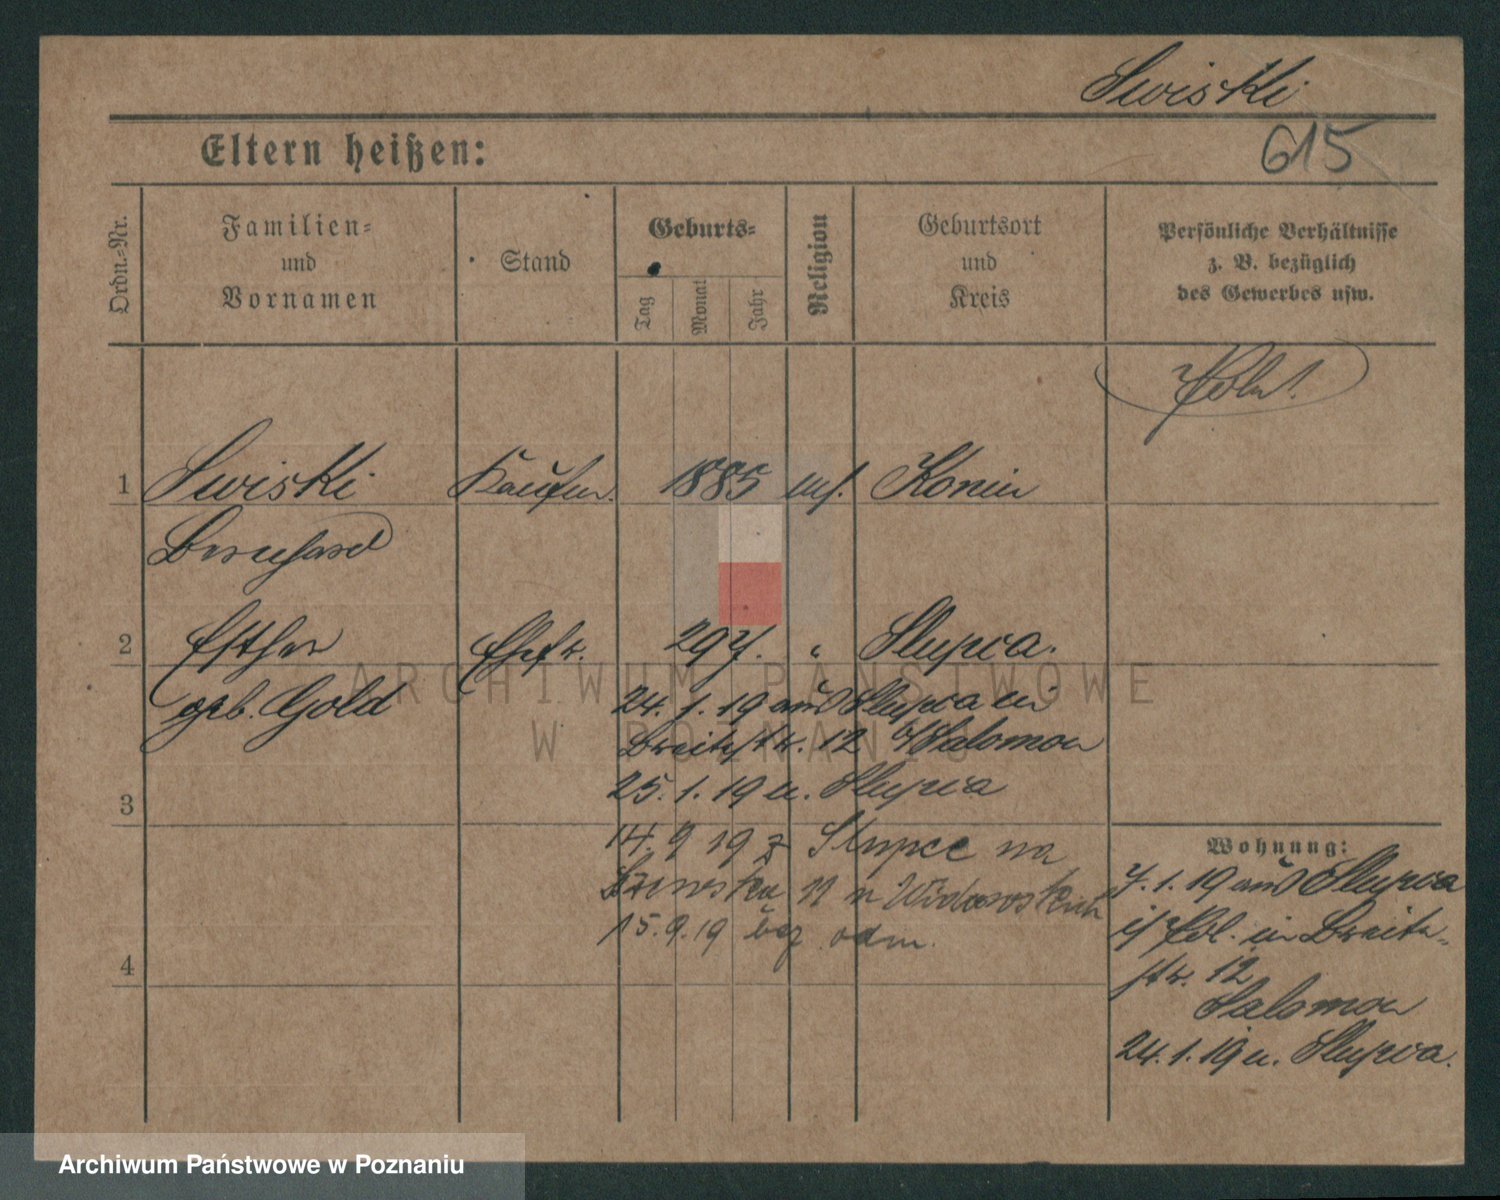 Swiski
615
Eltern heißen:
Ordn.-Nr.
Familien-
und
Vornamen
Stand
Geburts-
Tag
Monat
Jahr
Religion
Geburtsort
und
Kreis
Persönliche Verhältnisse
z. B. bezüglich
des Gewerbes usw.
Poln!
1 Swiski Kaufm. 1885 mos. Konin
Bernhard
2 Esther Ehefr. 29 J. " Slupca.
geb. Gold
24. 1. 19 aus Slupca in
Breitestr. 12 b/ Salomon
25. 1. 19 n. Slupca
3
14. 9 19 z Słupce na
11 n
15. 9. 19 bez odm.
4
Wohnung:
7. 1. 19 aus Slupca
i/ Pol. in Breite-
str. 12
Salomon
24. 1. 19 n. Slupca.
ARCHIWUM PAŃSTWOWE
W POZNANIU
Archiwum Państwowe w Poznaniu